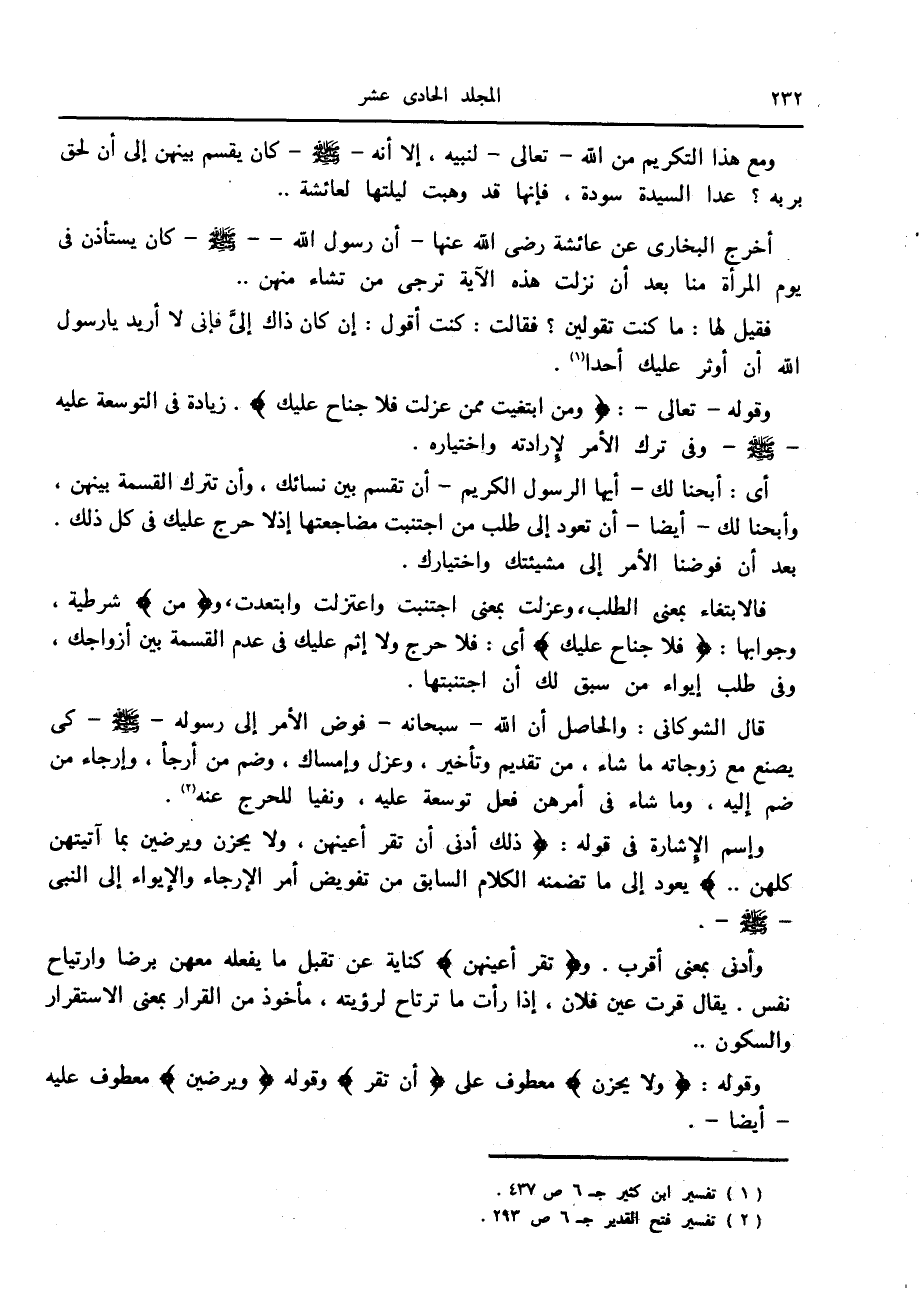 ٢٣٢ المجلد الحادى عشر
ومع هذا التكريم من الله – تعالى – لنبيه ، إلا أنه – ﷺ – كان يقسم بينهن إلى أن لحق
بربه ؟ عدا السيدة سودة ، فإنها قد وهبت ليلتها لعائشة ..
أخرج البخارى عن عائشة رضى الله عنها – أن رسول الله – – ﷺ – كان يستأذن فى
يوم المرأة منا بعد أن نزلت هذه الآية ترجى من تشاء منهن ..
فقيل لها : ما كنت تقولين ؟ فقالت : كنت أقول : إن كان ذاك إلىَّ فإنى لا أريد يارسول
الله أن أوثر عليك أحدا(١) .
وقوله – تعالى – : ﴿ ومن ابتغيت ممن عزلت فلا جناح عليك ﴾ . زيادة فى التوسعة عليه
– ﷺ – وفى ترك الأمر لإرادته واختياره .
أى : أبحنا لك – أيها الرسول الكريم – أن تقسم بين نسائك ، وأن تترك القسمة بينهن ،
وأبحنا لك – أيضا – أن تعود إلى طلب من اجتنبت مضاجعتها إذلا حرج عليك فى كل ذلك .
بعد أن فوضنا الأمر إلى مشيئتك واختيارك .
فالابتغاء بمعنى الطلب، وعزلت بمعنى اجتنبت واعتزلت وابتعدت، و﴿ من ﴾ شرطية ،
وجوابها : ﴿ فلا جناح عليك ﴾ أى : فلا حرج ولا إثم عليك فى عدم القسمة بين أزواجك ،
وفى طلب إيواء من سبق لك أن اجتنبتها .
قال الشوكانى : والحاصل أن الله – سبحانه – فوض الأمر إلى رسوله – ﷺ – كى
يصنع مع زوجاته ما شاء ، من تقديم وتأخير ، وعزل وإمساك ، وضم من أرجأ ، وإرجاء من
ضم إليه ، وما شاء فى أمرهن فعل توسعة عليه ، ونفيا للحرج عنه(٢) .
وإسم الإشارة فى قوله : ﴿ ذلك أدنى أن تقر أعينهن ، ولا يحزن ويرضين بما آتيتهن
كلهن .. ﴾ يعود إلى ما تضمنه الكلام السابق من تفويض أمر الإرجاء والإيواء إلى النبى
– ﷺ – .
وأدنى بمعنى أقرب . و﴿ تقر أعينهن ﴾ كناية عن تقبل ما يفعله معهن برضا وارتياح
نفس . يقال قرت عين فلان ، إذا رأت ما ترتاح لرؤيته ، مأخوذ من القرار بمعنى الاستقرار
والسكون ..
وقوله : ﴿ ولا يحزن ﴾ معطوف على ﴿ أن تقر ﴾ وقوله ﴿ ويرضين ﴾ معطوف عليه
– أيضا – .
( ١ ) تفسير ابن كثير جـ ٦ ص ٤٣٧ .
( ٢ ) تفسير فتح القدير جـ ٦ ص ٢٩٣ .